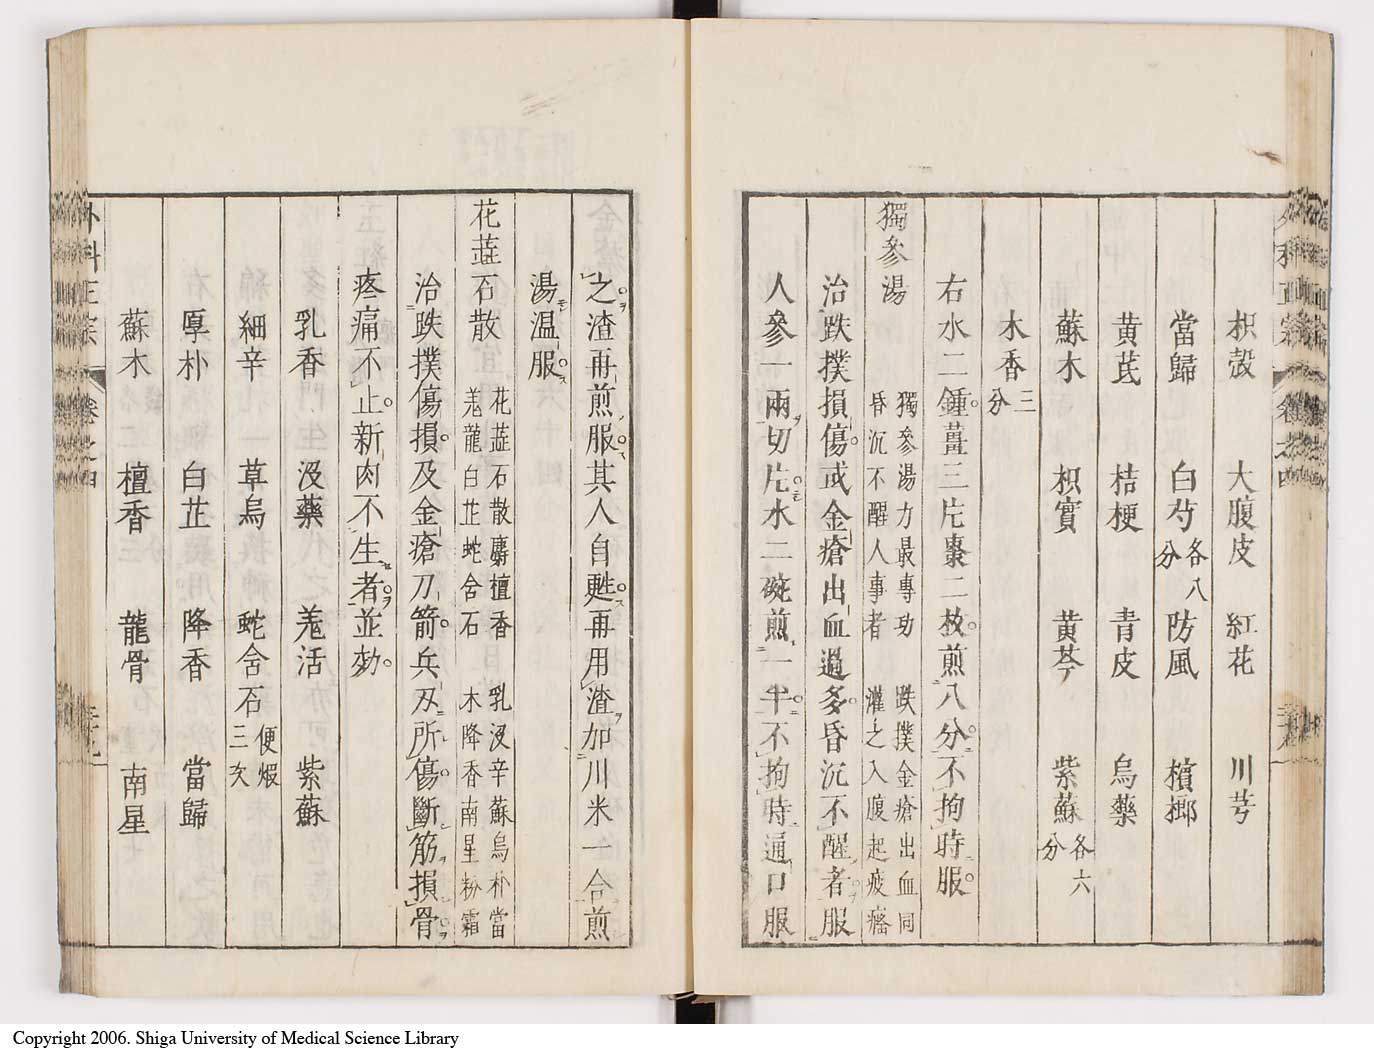 枳殼　大腹皮　紅花　川芎
當歸　白芍各八分　防風　檳榔
黃芪　桔梗　青皮　烏藥
蘇木　枳實　黃芩　紫蘇各六分
木香三分
右水二鍾薑三片棗二枚煎八分不拘時服
獨參湯　獨參湯力最專功　跌撲金瘡出血同
昏沉不醒人事者　灌之入腹起疲癃
治跌撲損傷或金瘡出血過多昏沉不醒者服
人參一兩切片水二碗煎一半不拘時通口服
之渣再煎服其人自甦再用渣加川米一合煎
湯温服
花蕋石散　花蕋石散麝檀香　乳沒辛蘇烏朴當
羌龍白芷蛇含石　木降香南星粉霜
治跌撲傷損及金瘡刀箭兵刃所傷斷筋損骨
疼痛不止新肉不生者並効
乳香　沒藥　羌活　紫蘇
細辛　草烏　蛇含石便煆三次
厚朴　白芷　降香　當歸
蘇木　檀香　龍骨　南星
外科正宗　卷之四
Copyright 2006. Shiga University of Medical Science Library